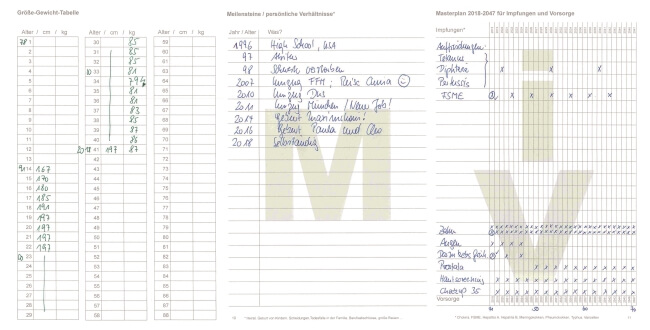 Größe-Gewicht-Tabelle
Alter / cm / kg
Alter / cm / kg
Alter / cm / kg
78 1
2
3
4
5
6
7
8
9
10
11
12
13
91 14 167
15 170
16 180
17 185
18 191
19 197
20 197
21 197
22 197
23
24
25
26
27
28
29
30 85
31 85
32 85
33 81
34 79,6
35 81
36 81
37 83
38 85
39 87
40 86
2018 41 197 87
42
43
44
45
46
47
48
49
50
51
52
53
54
55
56
57
58
59
60
61
62
63
64
65
66
67
68
69
70
71
72
73
74
75
76
77
78
79
80
81
82
83
84
85
86
87
88
Meilensteine / persönliche Verhältnisse*
Jahr / Alter
Was?
1996 High School, USA
97 Abitur
98 verstorben
2007 Umzug FFM; Reise Anna
2010 Umzug Dus
2011 Umzug München / New Job!
2014 Geburt Maximilian!
2016 Geburt Paula und Cleo
2018 Selbständig
M
10
Masterplan 2018-2047 für Impfungen und Vorsorge
Impfungen*
Auffrischungen:
Tetanus
Diphterie x x x
Pertussis
FSME x x x x x x
iV
Zahn
Augen x x x x
Darmkrebs x x
Prostata x x x x x x x x x
Hautscreening x x x x x x x x x x x
Checkup 35 x x x x x x x x x x x
Vorsorge
50
60
70
11